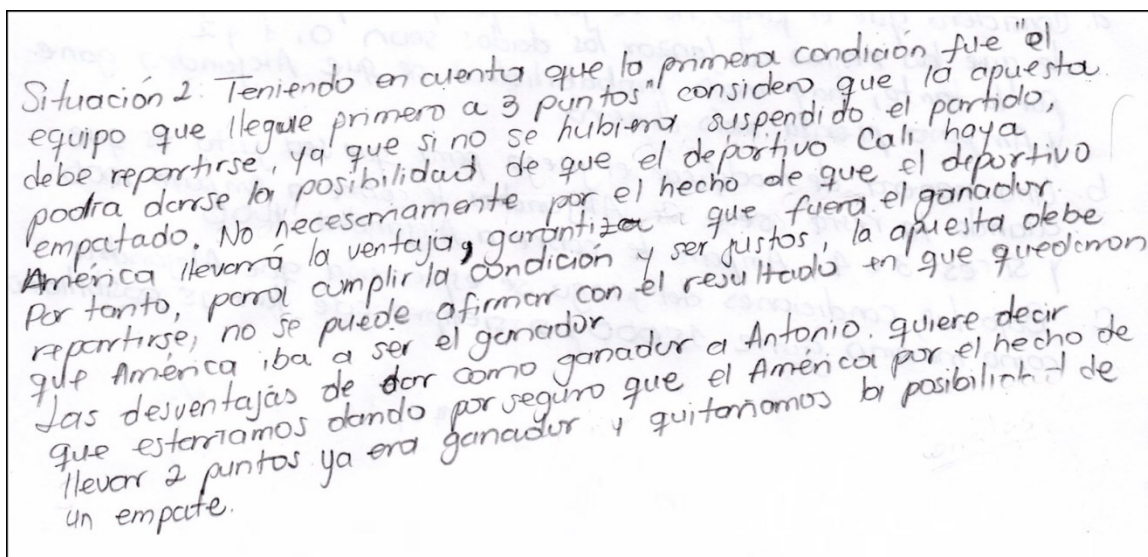 Situación 2. Teniendo en cuenta que la primera condición fue "el
equipo que llegue primero a 3 puntos" considero que la apuesta
debe repartirse, ya que si no se hubiera suspendido el partido,
podría darse la posibilidad de que el deportivo Cali haya
empatado. No necesariamente por el hecho de que el deportivo
América llevará la ventaja, garantiza que fuera el ganador.
Por tanto, para cumplir la condición y ser justos, la apuesta debe
repartirse, no se puede afirmar con el resultado en que quedaron
que América iba a ser el ganador
Las desventajas de dar como ganador a Antonio, quiere decir
que estaríamos dando por seguro que el América por el hecho de
llevar 2 puntos ya era ganador y quitaríamos la posibilidad de
un empate.